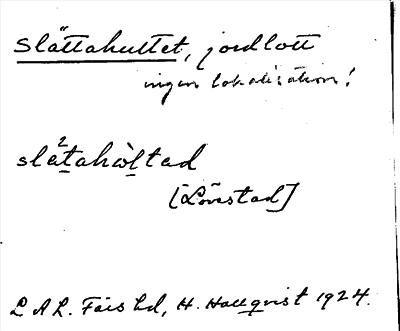 Slättahultet, jordlott
ingen lokalisation!
slä²tahòltad
[Lövestad]
L A L. Färs hd, H. Hallqvist 1924.